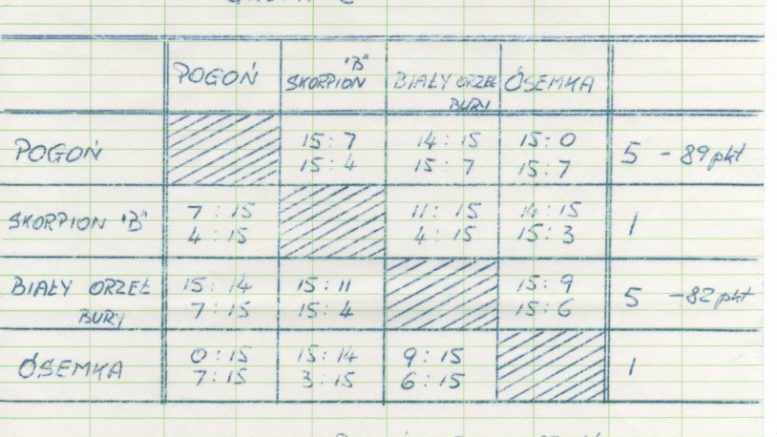 POGOŃ SKORPION "B" BIAŁY ORZEŁ BURY ÓSEMKA
POGOŃ 15:7 14:15 15:0 5 - 89 pkt
15:4 15:7 15:7
SKORPION "B" 7:15 11:15 14:15 1
4:15 4:15 15:3
BIAŁY ORZEŁ 15:14 15:11 15:9 5 - 82 pkt
BURY 7:15 15:4 15:6
ÓSEMKA 0:15 15:14 9:15 1
7:15 3:15 6:15